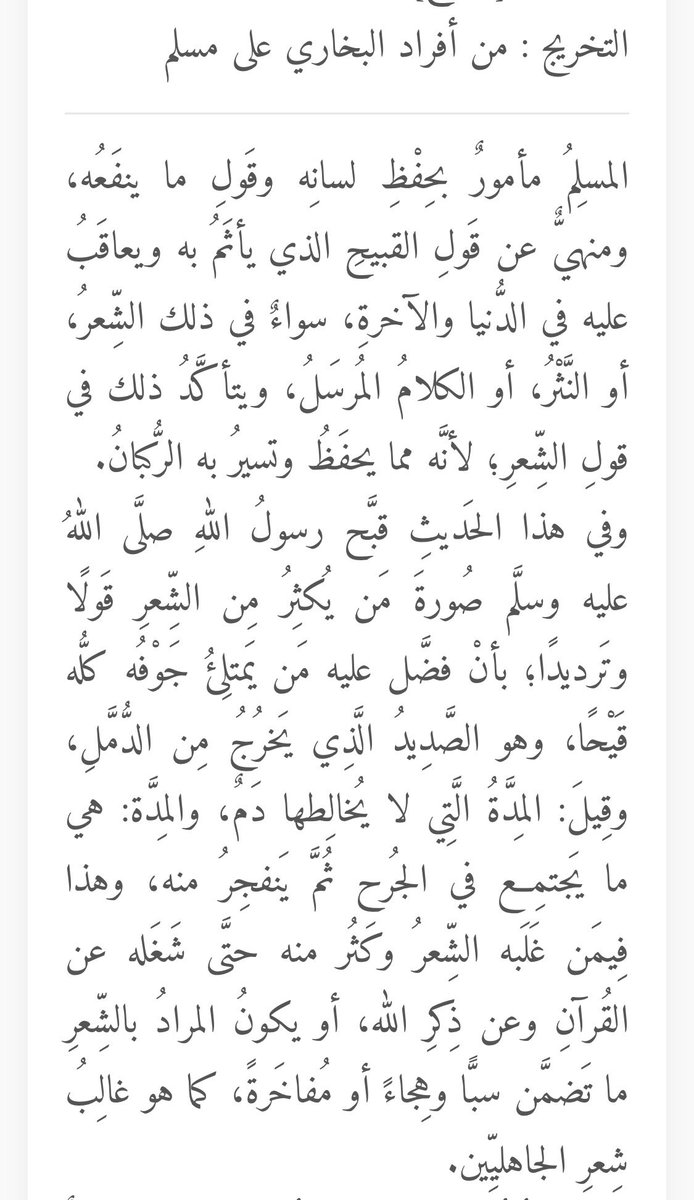 التخريج : من أفراد البخاري على مسلم
المسلِمُ مأمورٌ بحِفْظِ لسانِه وقَولِ ما ينفَعُه،
ومنهيٌّ عن قَولِ القبيحِ الذي يأثَمُ به ويعاقَبُ
عليه في الدُّنيا والآخرةِ، سواءٌ في ذلك الشِّعرُ،
أو النَّثْرُ، أو الكلامُ المُرسَلُ، ويتأكَّدُ ذلك في
قولِ الشِّعرِ؛ لأنَّه مما يحفَظُ وتسيرُ به الرُّكبانُ.
وفي هذا الحَديثِ قبَّح رسولُ اللهِ صلَّى اللهُ
عليه وسلَّم صُورةَ مَن يُكثِرُ مِن الشِّعرِ قَولًا
وتَرديدًا؛ بأنْ فضَّل عليه مَن يَمتلِئُ جَوْفُه كلُّه
قَيْحًا، وهو الصَّديدُ الَّذِي يَخرُجُ مِن الدُّمَّلِ،
وقِيلَ: المِدَّةُ الَّتِي لا يُخالِطها دَمٌ، والمِدَّة: هي
ما يَجتمِع في الجُرح ثُمَّ يَنفجِرُ منه، وهذا
فِيمَن غَلَبه الشِّعرُ وكَثُر منه حتَّى شَغَله عن
القُرآنِ وعن ذِكرِ الله، أو يكونُ المرادُ بالشِّعرِ
ما تَضمَّن سبًّا وهِجاءً أو مُفاخَرةً، كما هو غالِبُ
شِعرِ الجاهليِّين.